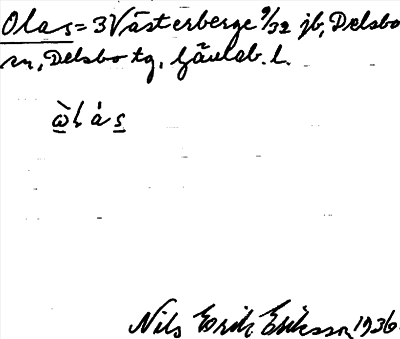 Olas = 3 Västerberge 9/32 jb, Delsbo
sn, Delsbo tg, Gävleb. l.
ὼlás
Nils Erik Eriksson 1936.